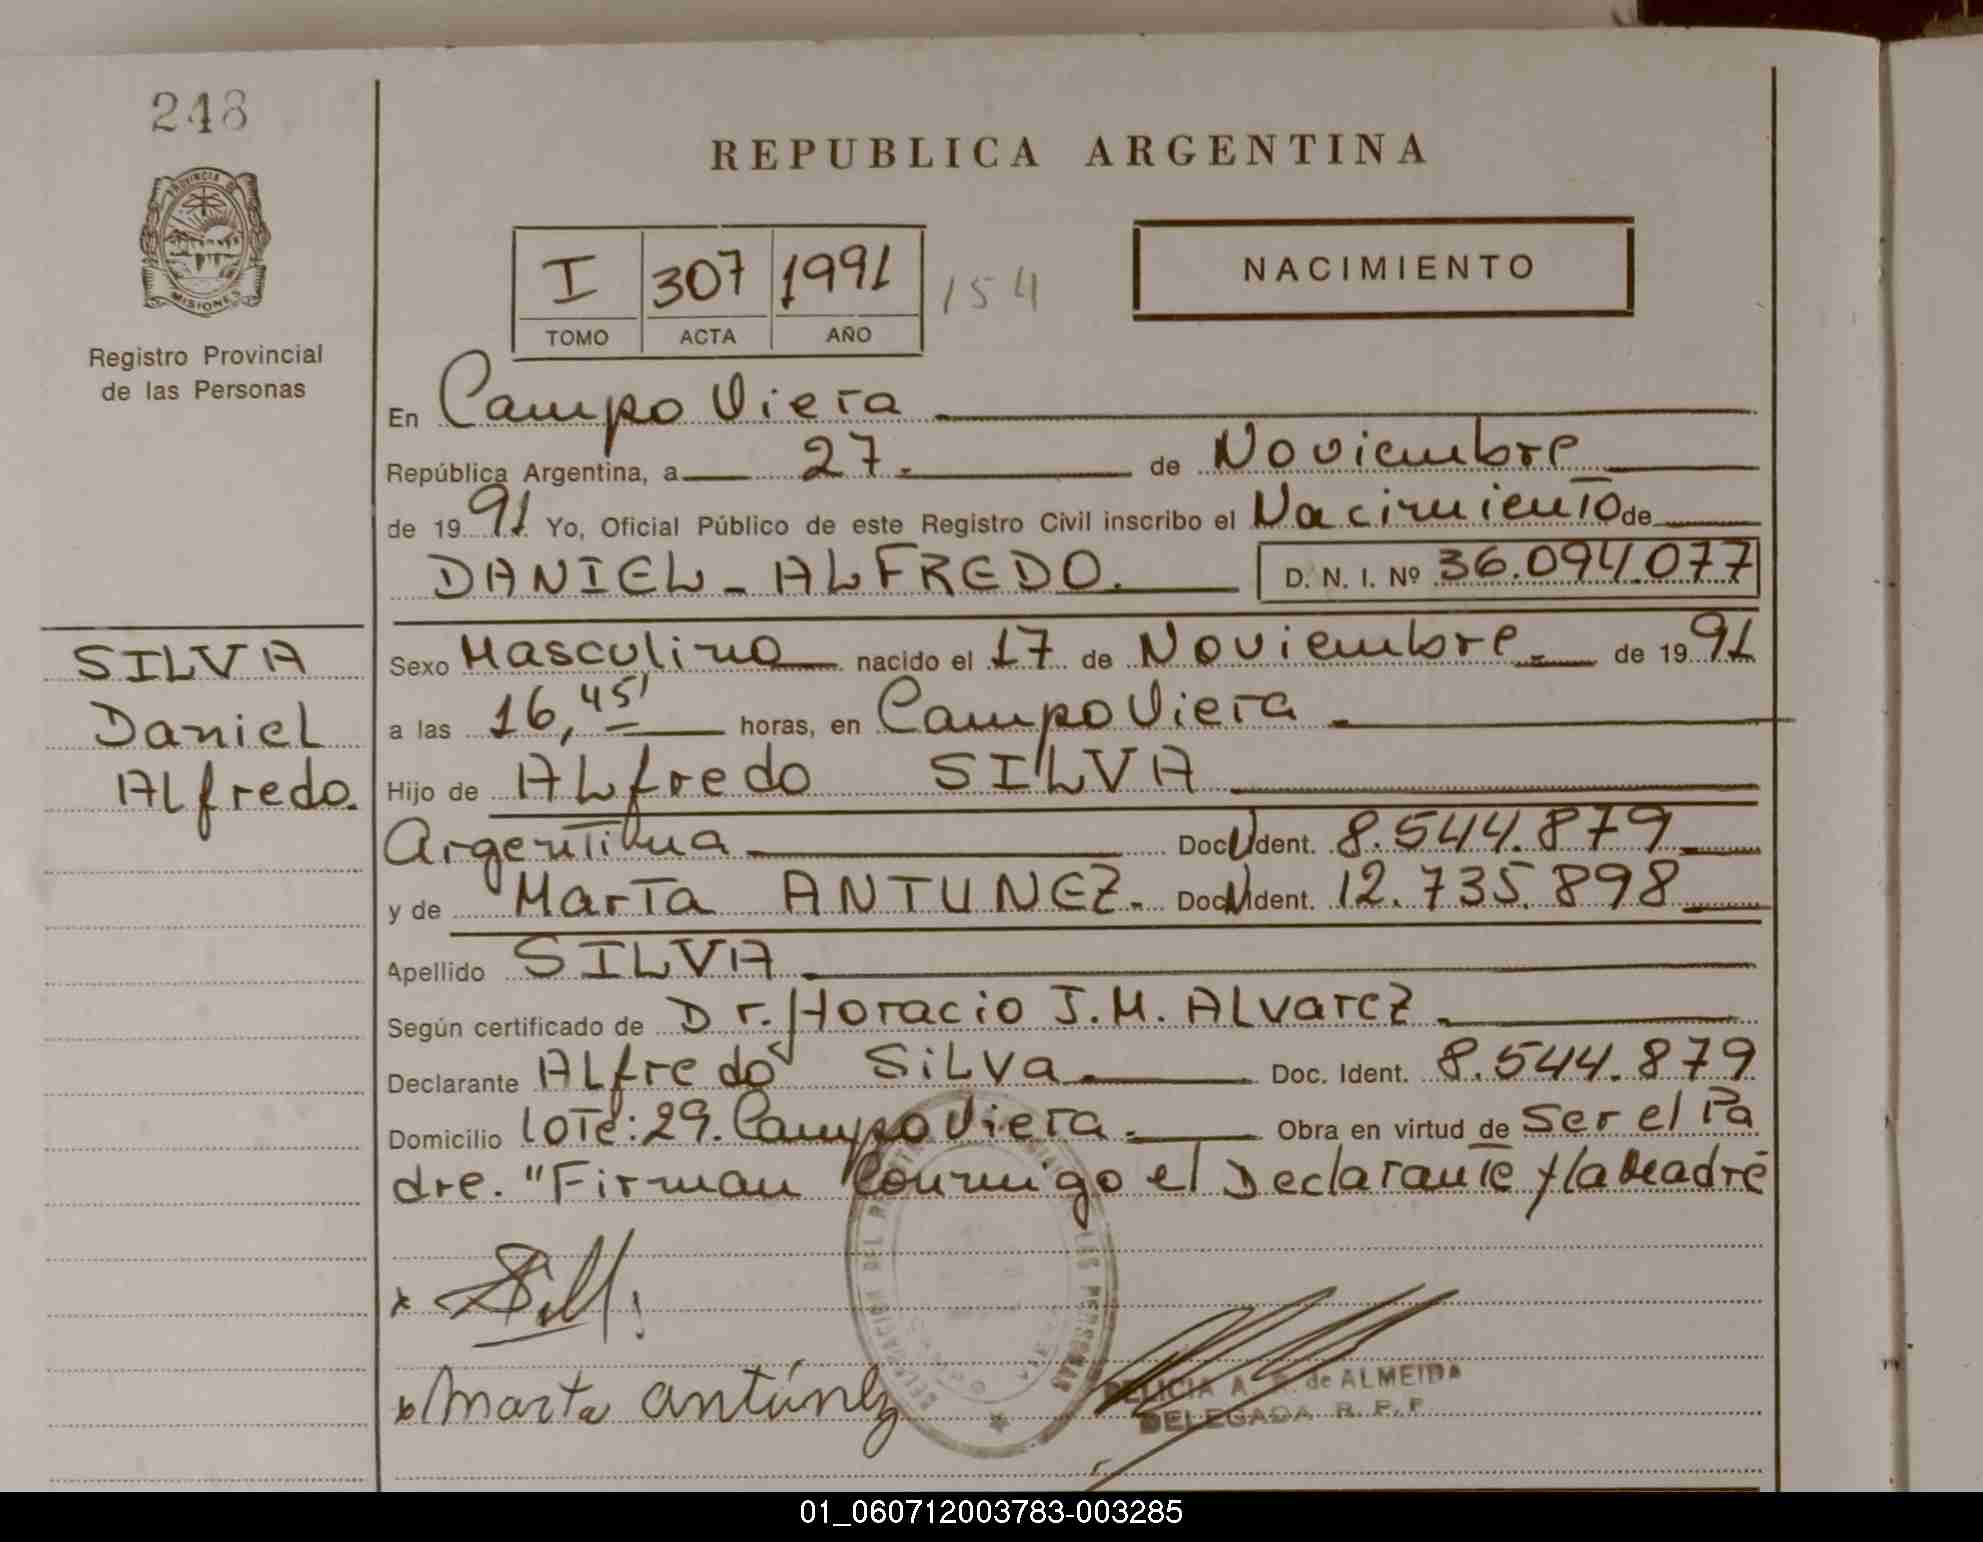 248
PROVINCIA DE
MISIONES
Registro Provincial
de las Personas
REPUBLICA ARGENTINA
I 307 1991 154
TOMO ACTA AÑO
NACIMIENTO
En Campo Viera
República Argentina, a 27. de Noviembre
de 1991 Yo, Oficial Público de este Registro Civil inscribo el Nacimiento de
DANIEL - ALFREDO. D. N. I. Nº 36.094.077
SILVA
Daniel
Alfredo.
Sexo Masculino nacido el 17 de Noviembre. de 1991
a las 16,45' horas, en Campo Viera
Hijo de Alfredo SILVA
Argentina Doc. Ident. 8.544.879
y de Marta ANTUNEZ. Doc. Ident. 12.735.898
Apellido SILVA
Según certificado de Dr. Horacio J.M. Alvarez
Declarante Alfredo Silva Doc. Ident. 8.544.879
Domicilio lote: 29. Campo Viera. Obra en virtud de Ser el Pa
dre. "Firman Conmigo el Declarante y la Madre
x
x Marta Antúnez
A. de ALMEIDA
DELEGADA R. P. P.
01_060712003783-003285